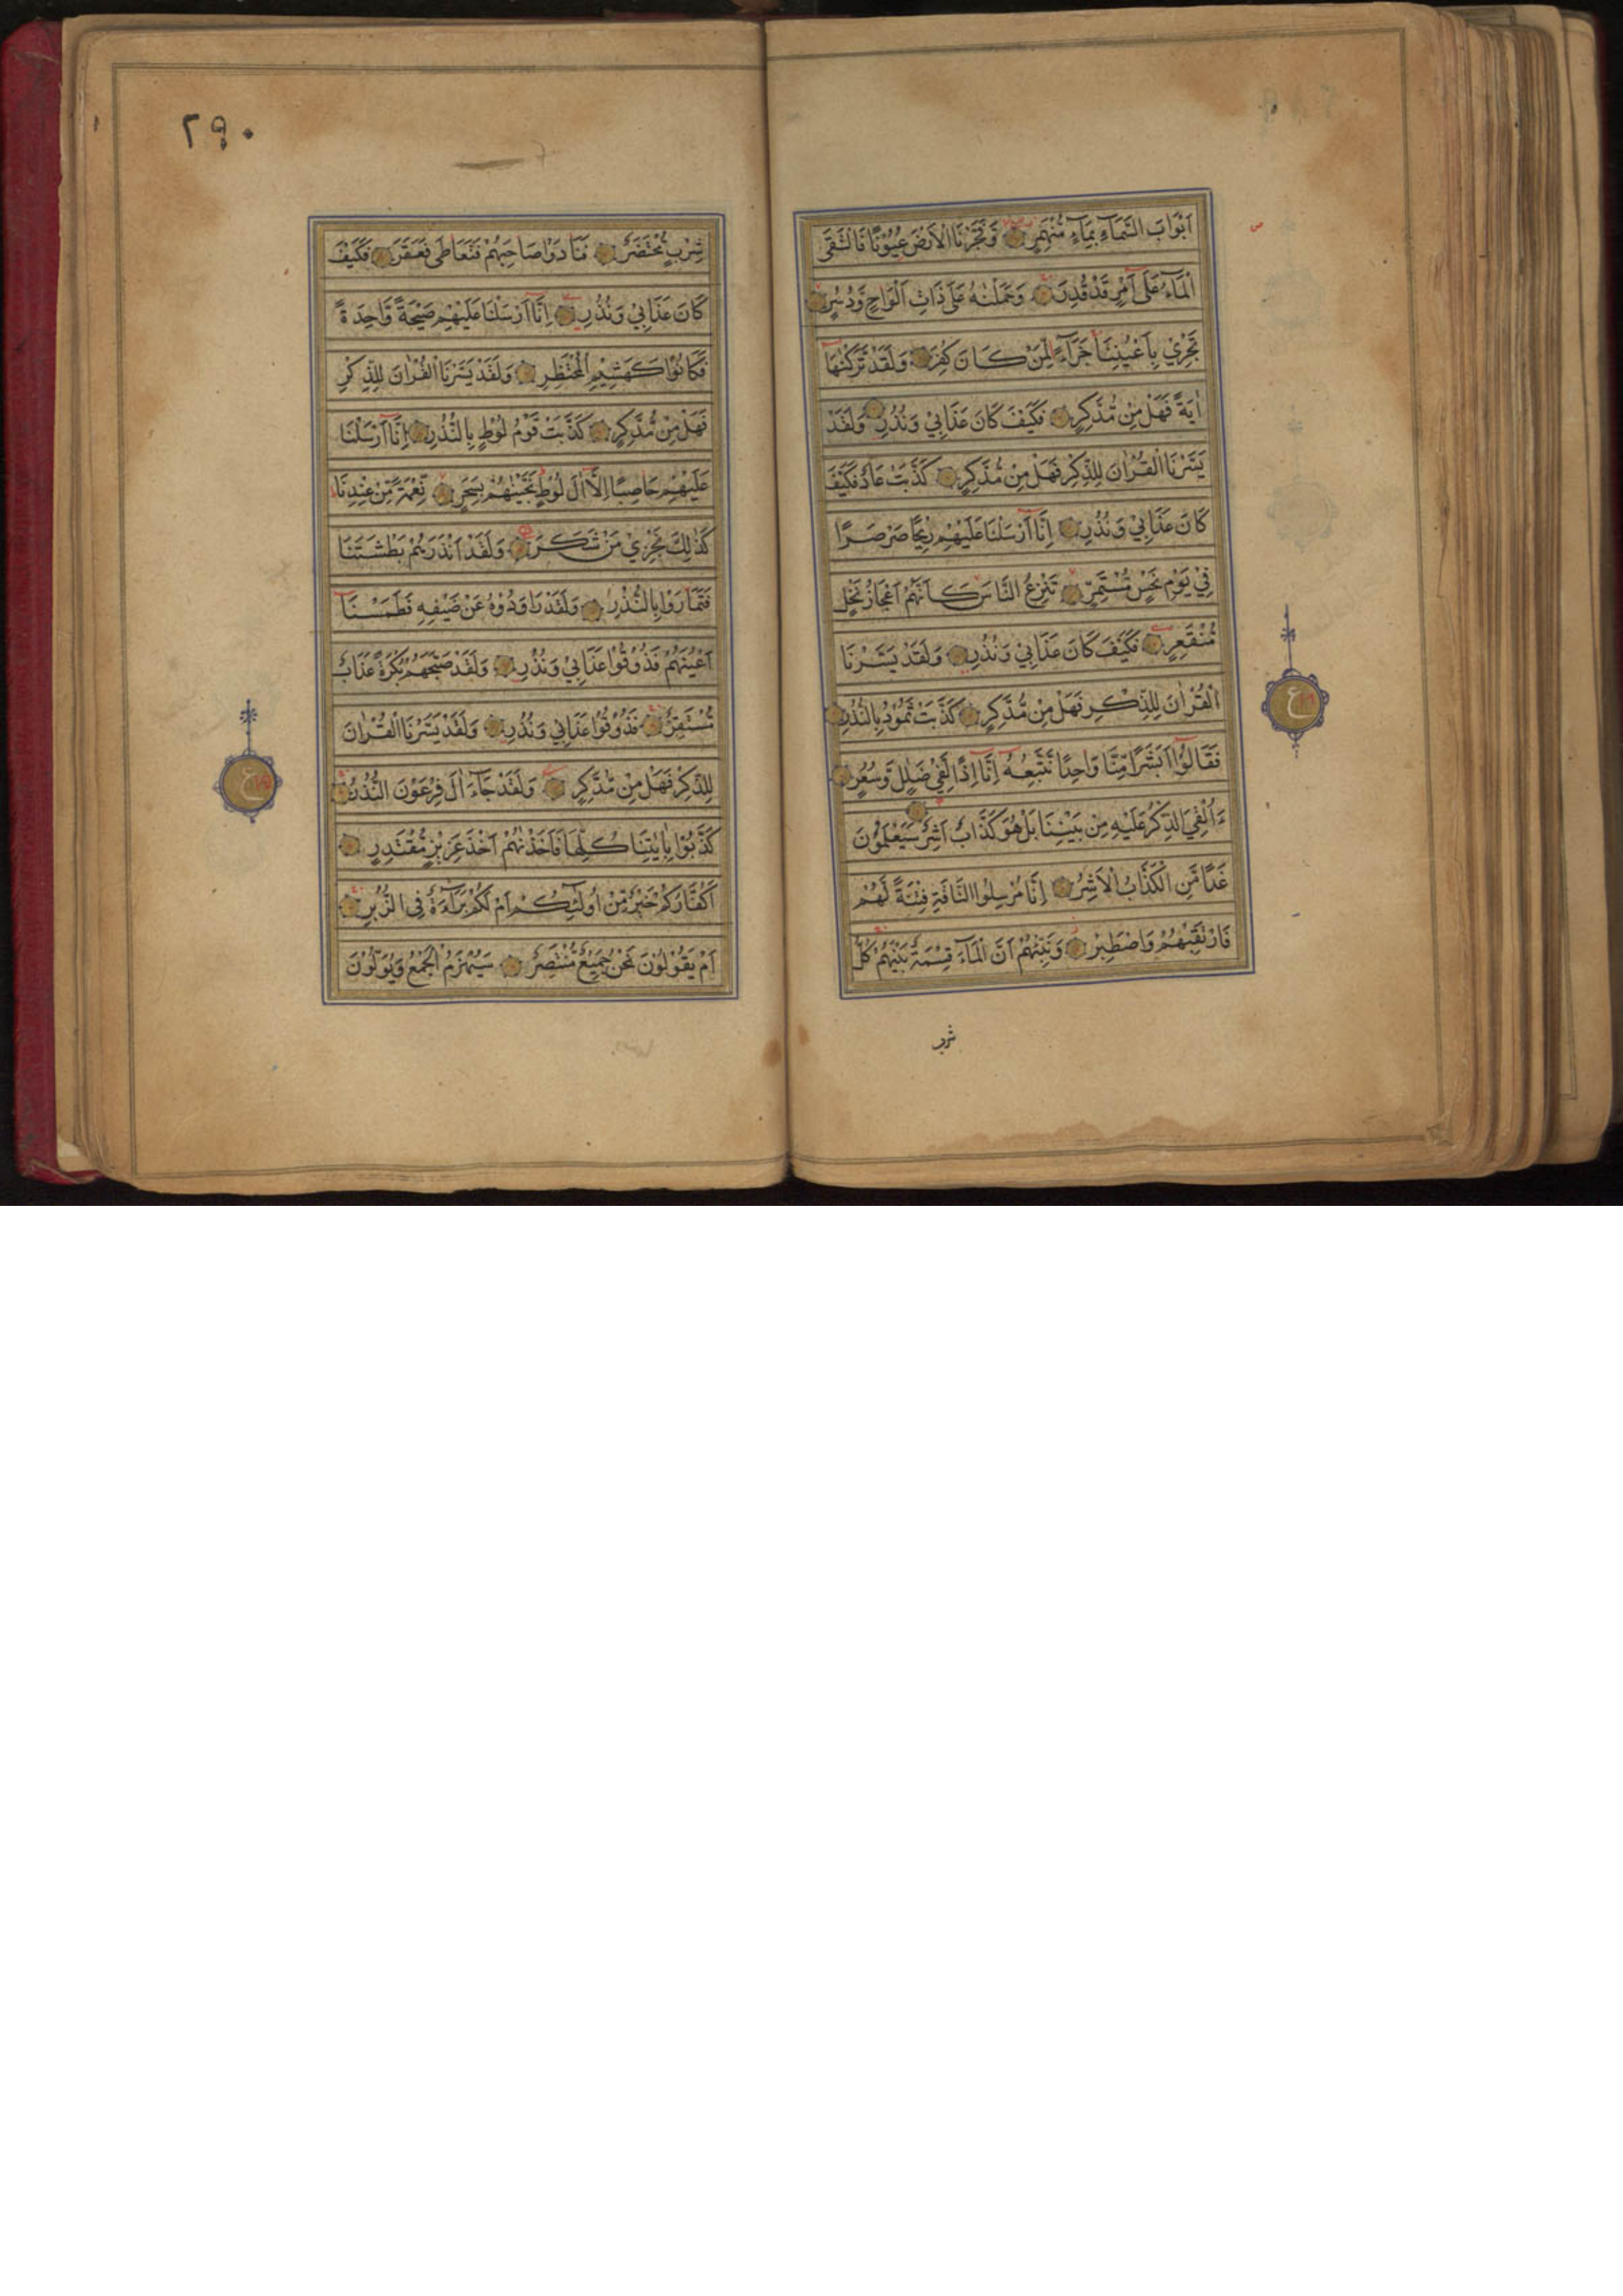 اَبْوَابَ السَّمَآءِ بِمَآءٍ مُّنْهَمِرٍ وَفَجَّرْنَا الْاَرْضَ عُيُوْنًا فَالْتَقَى
الْمَآءُ عَلٰٓى اَمْرٍ قَدْ قُدِرَ وَحَمَلْنٰهُ عَلٰى ذَاتِ اَلْوَاحٍ وَّدُسُرٍ
تَجْرِيْ بِاَعْيُنِنَا جَزَآءً لِّمَنْ كَانَ كُفِرَ وَلَقَدْ تَّرَكْنٰهَآ
اٰيَةً فَهَلْ مِنْ مُّدَّكِرٍ فَكَيْفَ كَانَ عَذَابِيْ وَنُذُرِ وَلَقَدْ
يَسَّرْنَا الْقُرْاٰنَ لِلذِّكْرِ فَهَلْ مِنْ مُّدَّكِرٍ كَذَّبَتْ عَادٌ فَكَيْفَ
كَانَ عَذَابِيْ وَنُذُرِ اِنَّآ اَرْسَلْنَا عَلَيْهِمْ رِيْحًا صَرْصَرًا
فِيْ يَوْمِ نَحْسٍ مُّسْتَمِرٍّ تَنْزِعُ النَّاسَ كَاَنَّهُمْ اَعْجَازُ نَخْلٍ
مُّنْقَعِرٍ فَكَيْفَ كَانَ عَذَابِيْ وَنُذُرِ وَلَقَدْ يَسَّرْنَا
الْقُرْاٰنَ لِلذِّكْرِ فَهَلْ مِنْ مُّدَّكِرٍ كَذَّبَتْ ثَمُوْدُ بِالنُّذُرِ
فَقَالُوْٓا اَبَشَرًا مِّنَّا وَاحِدًا نَّتَّبِعُهٗٓ اِنَّآ اِذًا لَّفِيْ ضَلٰلٍ وَّسُعُرٍ
ءَاُلْقِيَ الذِّكْرُ عَلَيْهِ مِنْ بَيْنِنَا بَلْ هُوَ كَذَّابٌ اَشِرٌ سَيَعْلَمُوْنَ
غَدًا مَّنِ الْكَذَّابُ الْاَشِرُ اِنَّا مُرْسِلُوا النَّاقَةِ فِتْنَةً لَّهُمْ
فَارْتَقِبْهُمْ وَاصْطَبِرْ وَنَبِّئْهُمْ اَنَّ الْمَآءَ قِسْمَةٌ بَيْنَهُمْ كُلُّ
شرب
ع
٢٩٠
شِرْبٍ مُّحْتَضَرٌ فَنَادَوْا صَاحِبَهُمْ فَتَعَاطٰى فَعَقَرَ فَكَيْفَ
كَانَ عَذَابِيْ وَنُذُرِ اِنَّآ اَرْسَلْنَا عَلَيْهِمْ صَيْحَةً وَّاحِدَةً
فَكَانُوْا كَهَشِيْمِ الْمُحْتَظِرِ وَلَقَدْ يَسَّرْنَا الْقُرْاٰنَ لِلذِّكْرِ
فَهَلْ مِنْ مُّدَّكِرٍ كَذَّبَتْ قَوْمُ لُوْطٍ بِالنُّذُرِ اِنَّآ اَرْسَلْنَا
عَلَيْهِمْ حَاصِبًا اِلَّآ اٰلَ لُوْطٍ نَّجَّيْنٰهُمْ بِسَحَرٍ نِّعْمَةً مِّنْ عِنْدِنَا
كَذٰلِكَ نَجْزِيْ مَنْ شَكَرَ وَلَقَدْ اَنْذَرَهُمْ بَطْشَتَنَا
فَتَمَارَوْا بِالنُّذُرِ وَلَقَدْ رَاوَدُوْهُ عَنْ ضَيْفِهٖ فَطَمَسْنَآ
اَعْيُنَهُمْ فَذُوْقُوْا عَذَابِيْ وَنُذُرِ وَلَقَدْ صَبَّحَهُمْ بُكْرَةً عَذَابٌ
مُّسْتَقِرٌّ فَذُوْقُوْا عَذَابِيْ وَنُذُرِ وَلَقَدْ يَسَّرْنَا الْقُرْاٰنَ
لِلذِّكْرِ فَهَلْ مِنْ مُّدَّكِرٍ وَلَقَدْ جَآءَ اٰلَ فِرْعَوْنَ النُّذُرُ
كَذَّبُوْا بِاٰيٰتِنَا كُلِّهَا فَاَخَذْنٰهُمْ اَخْذَ عَزِيْزٍ مُّقْتَدِرٍ
اَكُفَّارُكُمْ خَيْرٌ مِّنْ اُولٰٓئِكُمْ اَمْ لَكُمْ بَرَآءَةٌ فِى الزُّبُرِ
اَمْ يَقُوْلُوْنَ نَحْنُ جَمِيْعٌ مُّنْتَصِرٌ سَيُهْزَمُ الْجَمْعُ وَيُوَلُّوْنَ
ع